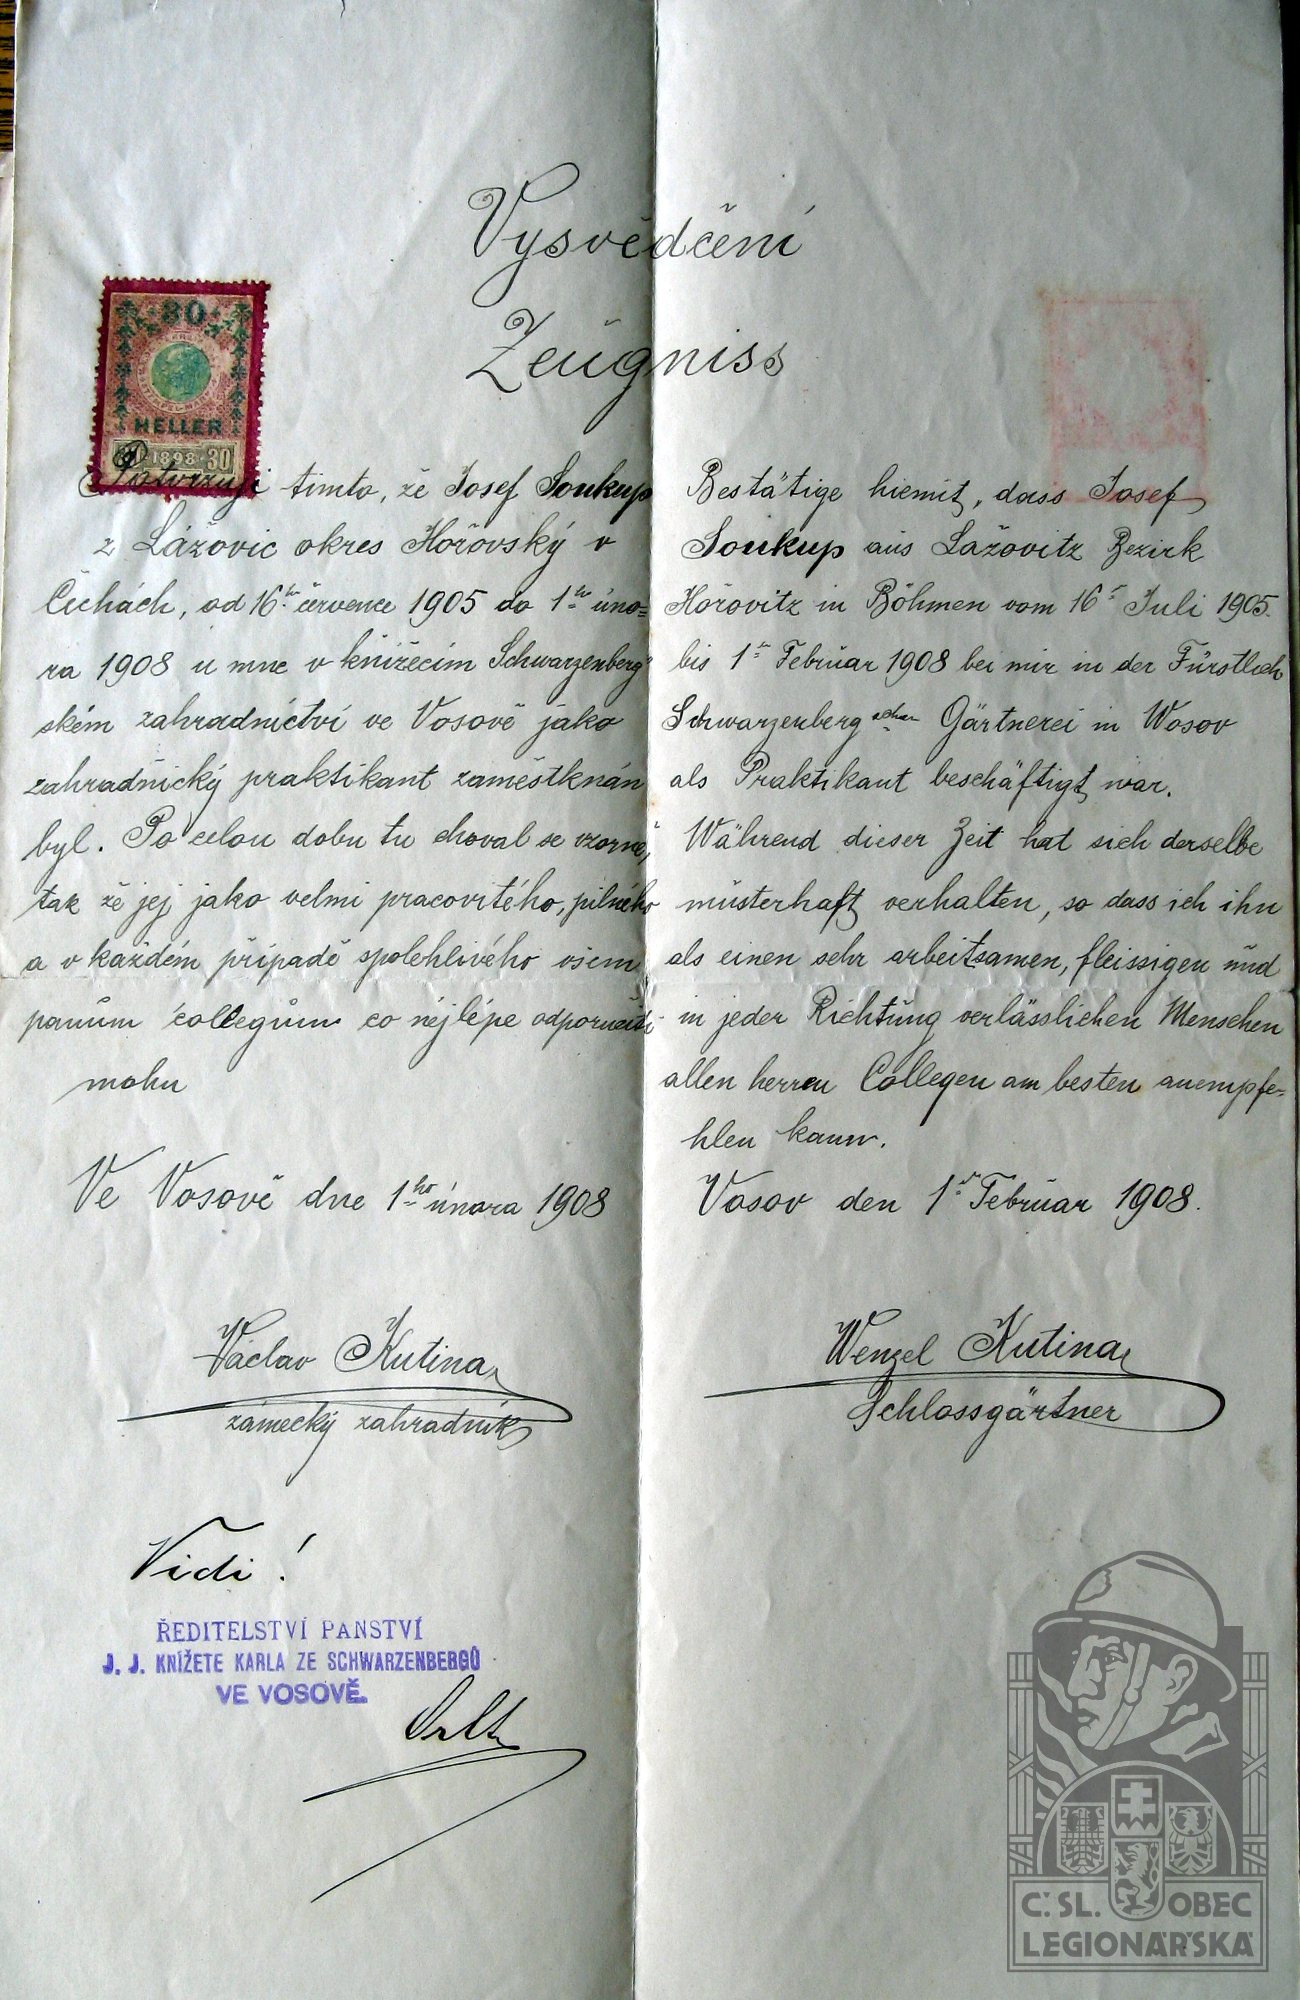 Vysvědčení
Zeůgniss
30
HELLER
30 1898 30
Potvrzuji tímto, že Josef Soukup
z Lážovic okres Hořovský v
Čechách, od 16ho července 1905 do 1ho úno=
ra 1908 u mne v knížecím Schwarzenberg"
ském zahradnictví ve Vosově jako
zahradnický praktikant zaměstknán
byl. Po celou dobu tu choval se vzorně,
tak že jej jako velmi pracovitého, pilného
a v každém případě spolehlivého všem
panům collegům co nejlépe odporučiti
mohu
Ve Vosově dne 1ho února 1908
Václav Kutina
zámecký zahradník
Vidi!
ŘEDITELSTVÍ PANSTVÍ
J. J. KNÍŽETE KARLA ZE SCHWARZENBERGŮ
VE VOSOVĚ.
Bestätige hiemit, dass Josef
Soukup aus Lažovitz Bezirk
Hořovitz in Böhmen vom 16t Juli 1905.
bis 1t Februar 1908 bei mir in der Fürstlich
Schwarzenberg'schen Gärtnerei in Wosov
als Praktikant beschäftigt war.
Während dieser Zeit hat sich derselbe
müsterhaft verhalten, so dass ich ihn
als einen sehr arbeitsamen, fleissigen und
in jeder Richtung verlässlichen Menschen
allen herren Collegen am besten anempfe=
hlen kann.
Vosov den 1t Februar 1908.
Wenzel Kutina
Schlossgärtner
Č. SL. OBEC
LEGIONÁŘSKÁ